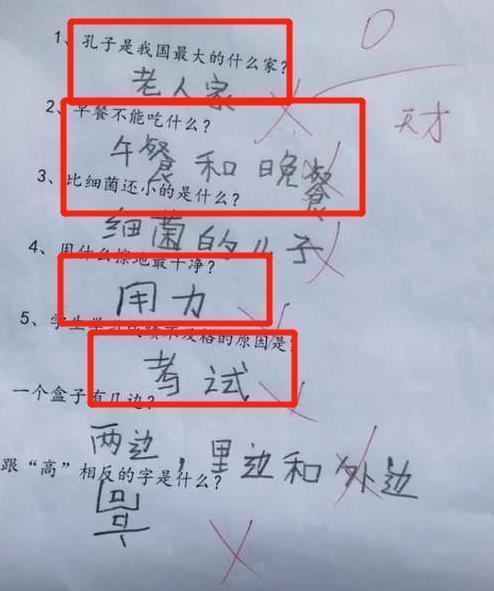 1、孔子是我国最大的什么家?
老人家
0
天才
2、早餐不能吃什么?
午餐和晚餐
3、比细菌还小的是什么?
细菌的儿子
4、用什么擦地最干净?
用力
5、学生 不及格的原因是?
考试
一个盒子有几边?
两边，里边和外边
跟“高”相反的字是什么?